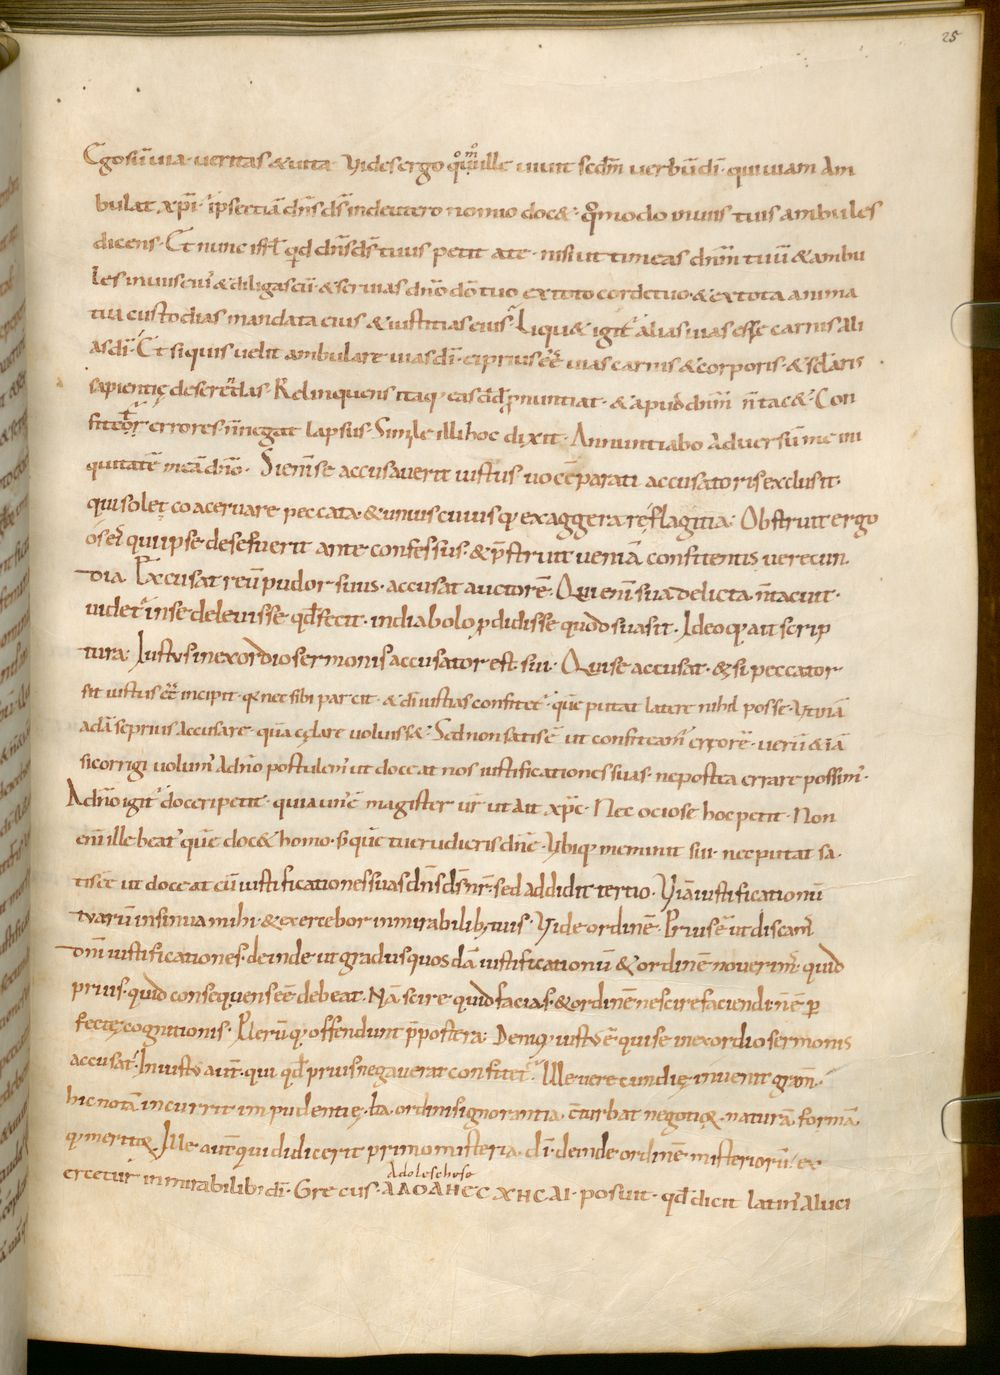 25
Ego sū via· veritas & vita· Vides ergo qm̊o ille vivit secdm̄ verbū dī· qui viam Am
bulat xp̄i· ipse etiā dn̄s ds̄ in deutero nomio doc&· qm̊odo in viis tuis ambules
dicens· Et nunc isrl̄ quid dn̄s ds̄ tuus petit a te· nisi ut timeas dnm̄ tuū & ambu
les in viis eiuſ & diligas eū· & servias dn̄o dō tuo ex toto corde tuo· & ex tota anima
tua custodias mandata eius & iustitias eius· Liqu& igit̄ alias vias esse carnis Ali
as dī· Et si quis velit ambulare vias dī· ei prius eē vias carnis & corporis· & sclaris
sapientię deserēdas· Relinquens itaq; eas dd̄ pnuntiat· & apud dnm̄ n̄ tac&· Con
fitet̄ errores· n̄ negat lapsus· Simile illi hoc dixit· Annuntiabo Adversū me ini
quitatē meā dn̄o· Si enī se accusaverit iustus· vocē parati accusatoris exclusit·
qui solet coacervare peccata· & unius cuiusq; exaggerare flagitia: Obstruit ergo
os ei qui ipse de se fuerit ante confessus· & p̄struit veniā confitentis verecun
dia Excusat reū pudor suus· accusat auctorē· Qui enī sua delicta n̄ tacuit·
videt̄ in se delevisse qd̄ fecit· in diabolo pdidisse quod suasit· Ideoq; ait scrip
tura: Iustus in exordio sermonis accusator est sui· Qui se accusat· & si peccator
sit iustus eē incipit· q nec sibi parcit· & dī iustias confitet̄· quē putat latere nihil posse· Vtinā
adā se prius accusare· quā cęlare voluiss&· Sed non satis ē ut confiteam̄ errorē· verū & iā
si corrigi volum̄ Adn̄o postulem̄ ut doceat nos iustificationes suas· ne postea errare possim̄·
A dn̄o igit̄ doceri petit· quia unꝰ ē magister vr̄ ut Ait xp̄c· Nec ociose hoc petit· Non
enī ille beat̄ quē doc& homo· s; quē tu erudieris dn̄e· Vbiq; meminit sui· nec putat sa
tis eē ut doceat eū iustificationes suas dn̄s ds̄ nr̄· sed addidit tertio· Viā iustificationū
tuarū insinua mihi· & exercebor in mirabilib; tuis· Vide ordinē· Prius ē ut discam̄
om̄ iustificationes· deinde ut gradus quosdā iustificationū & ordinē noverim̄· quid
prius· quid consequens eē debeat· Nā scire quid facias· & ordinē nescire faciendi n̄ ē p
fectę cognitionis· Plerūq; offendunt p̄postera: Deniq; iustꝰ ē· qui se in exordio sermonis
accusat̄· Iniustꝰ aut̄· qui qd̄ prius negaverat confitet̄· Ille verecundię invenit grām·
hic notā incurrit impudentię· Ita ordinis ignorantia· c̄turbat negotię· naturā formā
q; meritię Ille autē qui didicerit primo misteria dī· deinde ordinē misteriorū· ex
Adoleschese
ercetur in mirabilib; dī· Grecus· ΑΛΟΛΗϹϹ ΧΗϹΑΙ· posuit· qd̄ dicit latin̄ Aluci